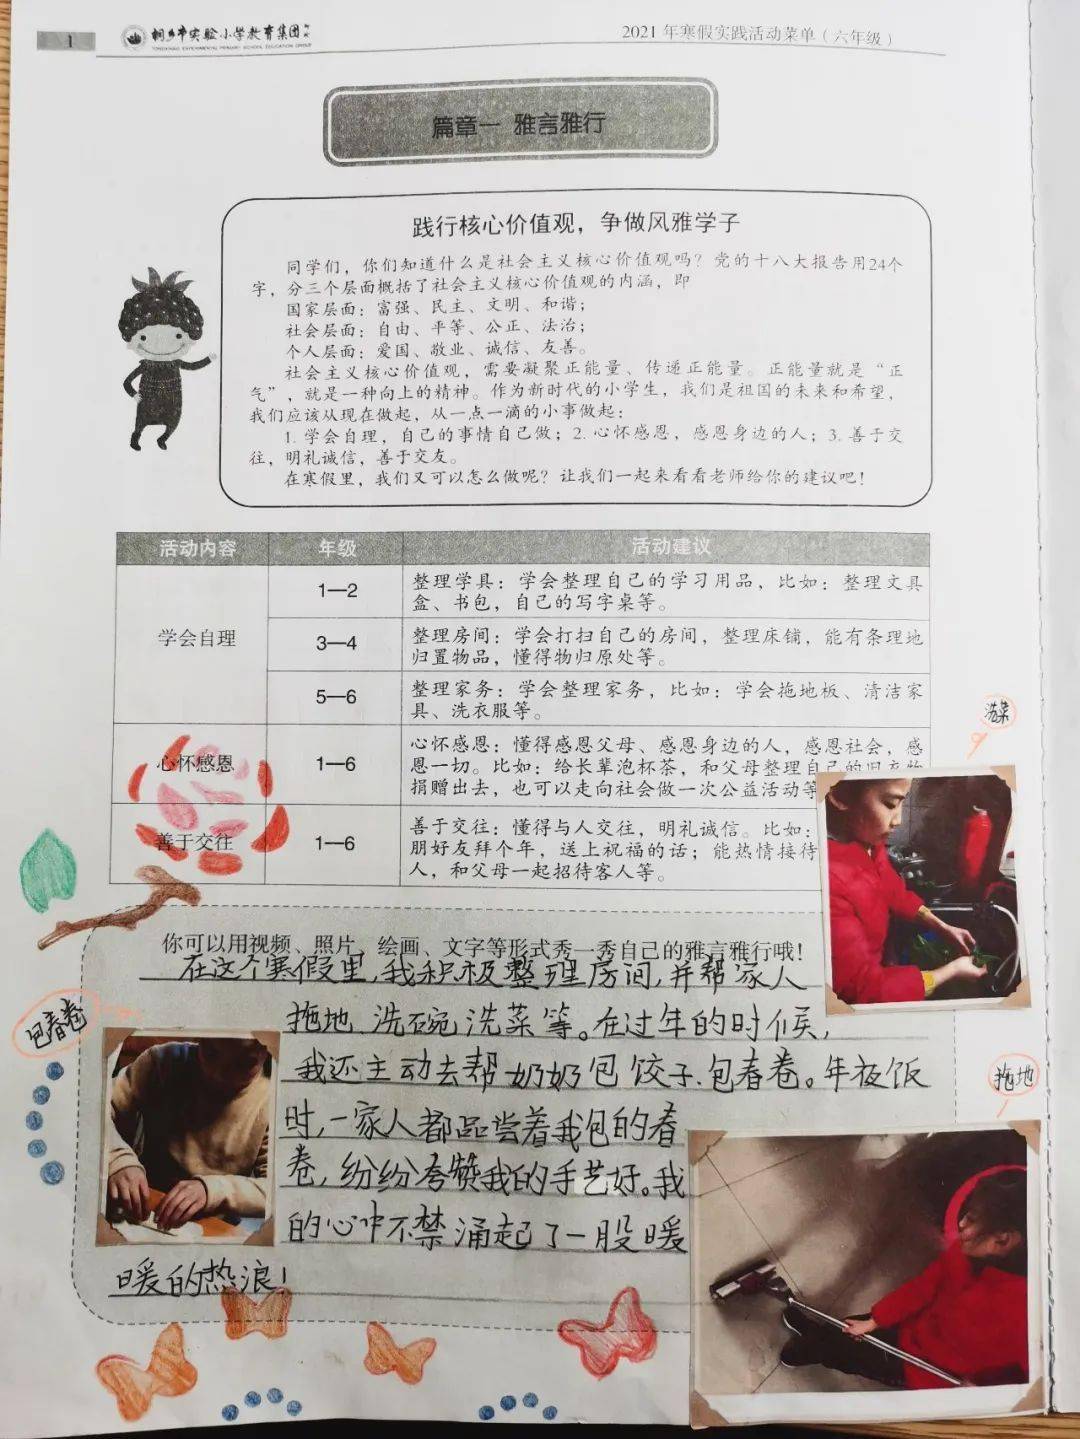 1
桐乡市实验小学教育集团
TONGXIANG EXPERIMENTAL PRIMARY SCHOOL EDUCATION GROUP
2021年寒假实践活动菜单（六年级）
篇章一 雅言雅行
践行核心价值观，争做风雅学子
同学们，你们知道什么是社会主义核心价值观吗？党的十八大报告用24个
字，分三个层面概括了社会主义核心价值观的内涵，即
国家层面：富强、民主、文明、和谐；
社会层面：自由、平等、公正、法治；
个人层面：爱国、敬业、诚信、友善。
社会主义核心价值观，需要凝聚正能量、传递正能量。正能量就是“正
气”，就是一种向上的精神。作为新时代的小学生，我们是祖国的未来和希望，
我们应该从现在做起，从一点一滴的小事做起：
1. 学会自理，自己的事情自己做；2. 心怀感恩，感恩身边的人；3. 善于交
往，明礼诚信，善于交友。
在寒假里，我们又可以怎么做呢？让我们一起来看看老师给你的建议吧！
活动内容 年级 活动建议
学会自理
1—2
整理学具：学会整理自己的学习用品，比如：整理文具
盒、书包，自己的写字桌等。
3—4
整理房间：学会打扫自己的房间，整理床铺，能有条理地
归置物品，懂得物归原处等。
5—6
整理家务：学会整理家务，比如：学会拖地板、清洁家
具、洗衣服等。
心怀感恩
1—6
心怀感恩：懂得感恩父母、感恩身边的人，感恩社会，感
恩一切。比如：给长辈泡杯茶，和父母整理自己的旧衣物
捐赠出去，也可以走向社会做一次公益活动等
善于交往
1—6
善于交往：懂得与人交往，明礼诚信。比如：
朋好友拜个年，送上祝福的话；能热情接待
人，和父母一起招待客人等。
洗菜
你可以用视频、照片、绘画、文字等形式秀一秀自己的雅言雅行哦！
在这个寒假里，我积极整理房间，并帮家人
拖地、洗碗、洗菜等。在过年的时候，
我还主动去帮奶奶包饺子、包春卷。年夜饭
时，一家人都品尝着我包的春
卷，纷纷夸赞我的手艺好。我
的心中不禁涌起了一股暖
暖的热浪！
包春卷
拖地